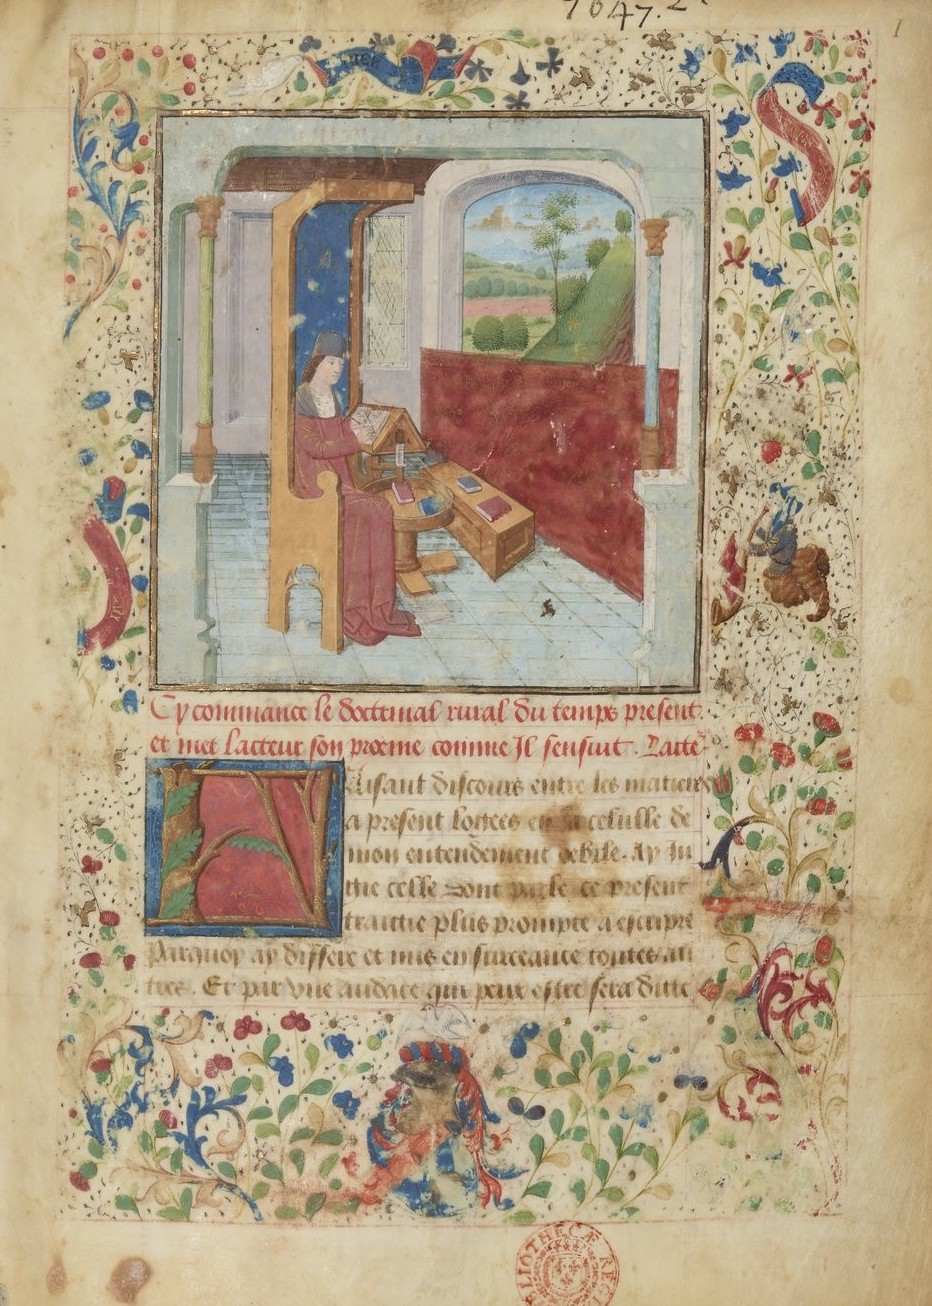 7647.2
1
Cy commance le doctrinal rural du temps present.
et met lacteur son proeme comme Il sensuit. Lacte
Aisant discours entre les matieres
a present logees en sa cellulle de
mon entendement debile. Ay Iu
gie celle dont parle ce present
traittie plus prompte a escripre
Parquoy ay differe et mis en surceance toutes au
tres. Et par vne audace qui peut estre sera ditte
BLIOTHECÆ REGI